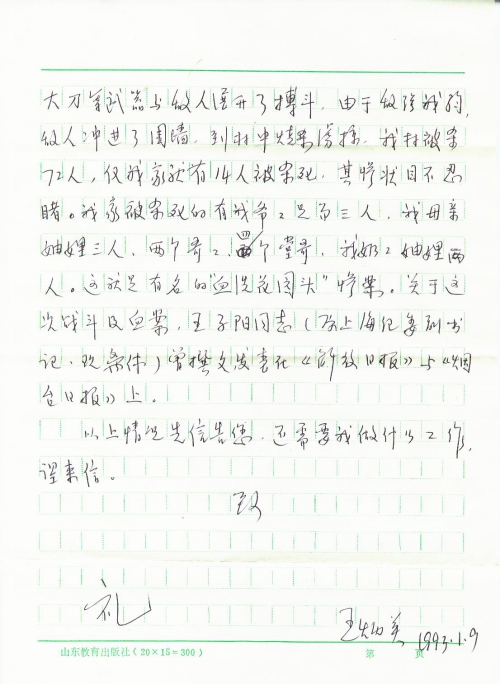 大刀等武器与敌人展开了搏斗。由于敌强我弱,
敌人冲进了围墙,到村中烧杀掳掠,我村被杀
72人,仅我家就有14人被杀死,其惨状目不忍
睹。我家被杀死的有我爷爷兄弟三人,我母亲
妯娌三人,两个哥哥,四个堂哥,我奶奶妯娌两
人。这就是有名的“血洗花园头”惨案。关于这
次战斗及血案,王子阳同志(原上海纪委副书
记、已离休)曾撰文发表在《解放日报》与《烟
台日报》上。
以上情况先信告您,还需要我做什么工作,
望来信。
致
礼
王 美 1993.1.9
山东教育出版社(20×15=300) 第 页